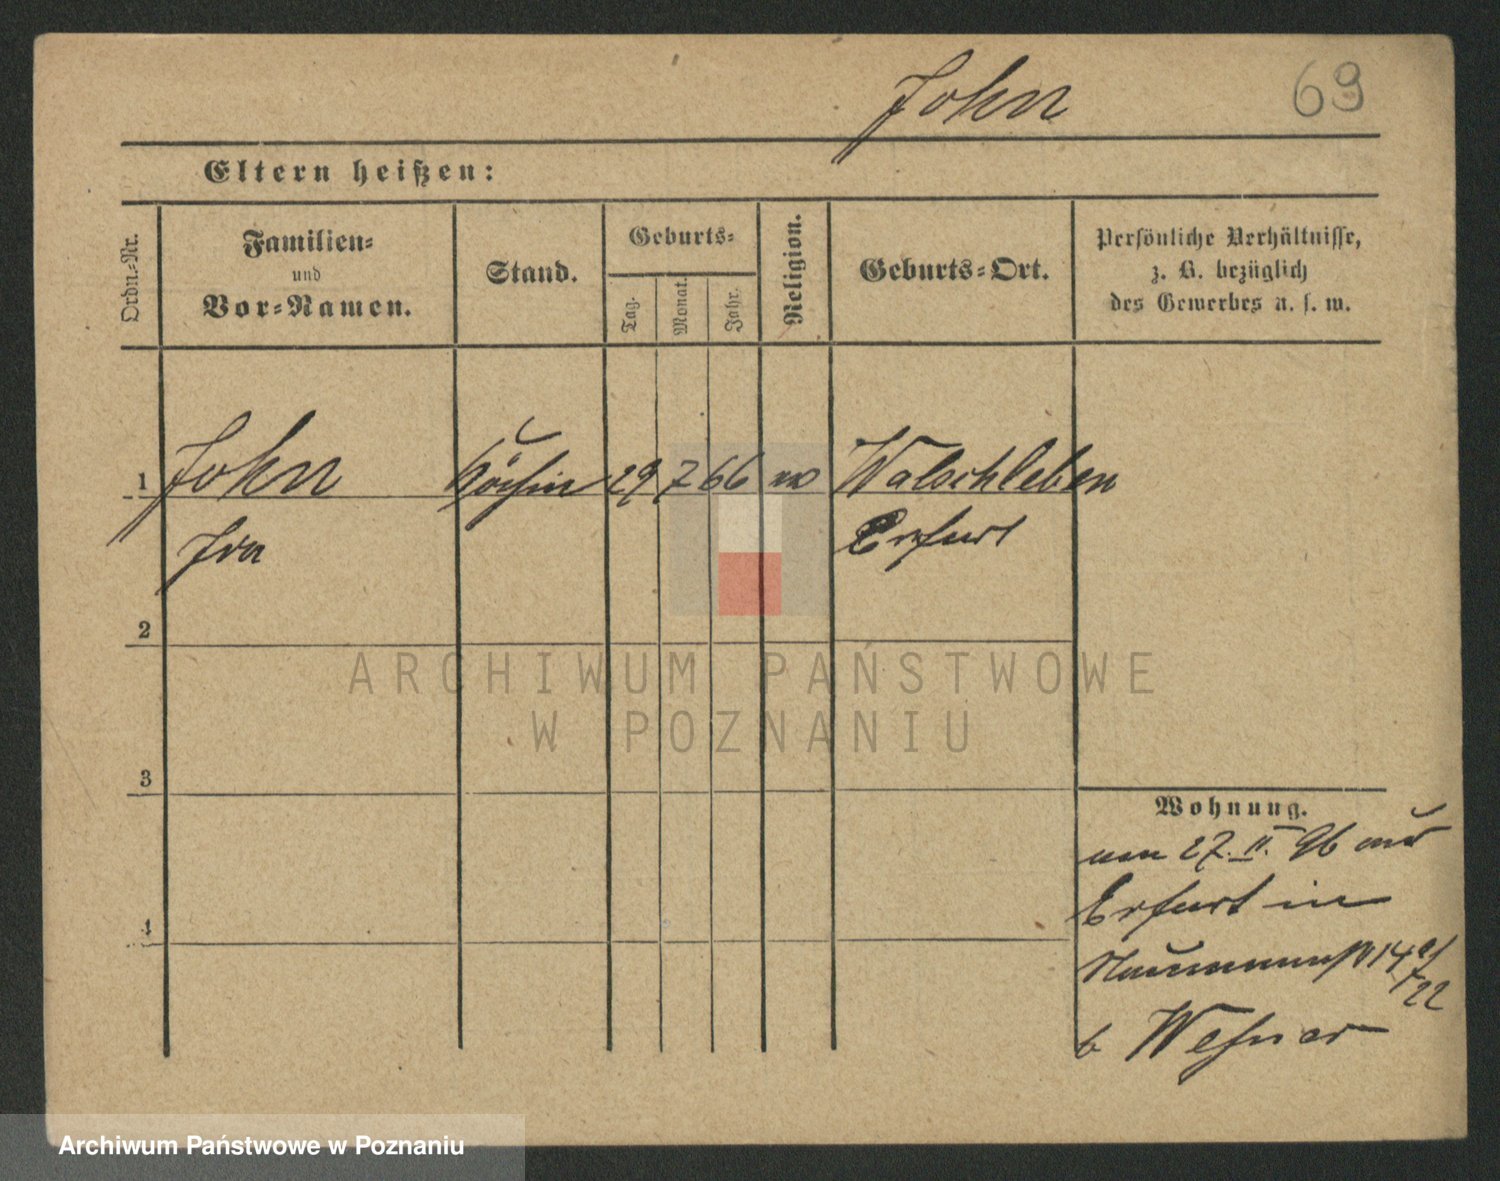 John
69
Eltern heißen:
Ordn.-Nr.
Familien-
und
Vor-Namen.
Stand.
Geburts-
Tag.
Monat.
Jahr.
Religion.
Geburts-Ort.
Persönliche Verhältnisse,
z. B. bezüglich
des Gewerbes u. s. w.
1
John
Köchin
29
7
66
Walschleben
Ida
Erfurt
2
ARCHIWUM PAŃSTWOWE
W POZNANIU
3
Wohnung.
am 27. II. 96 aus
Erfurt in
14
22
4
b
Archiwum Państwowe w Poznaniu